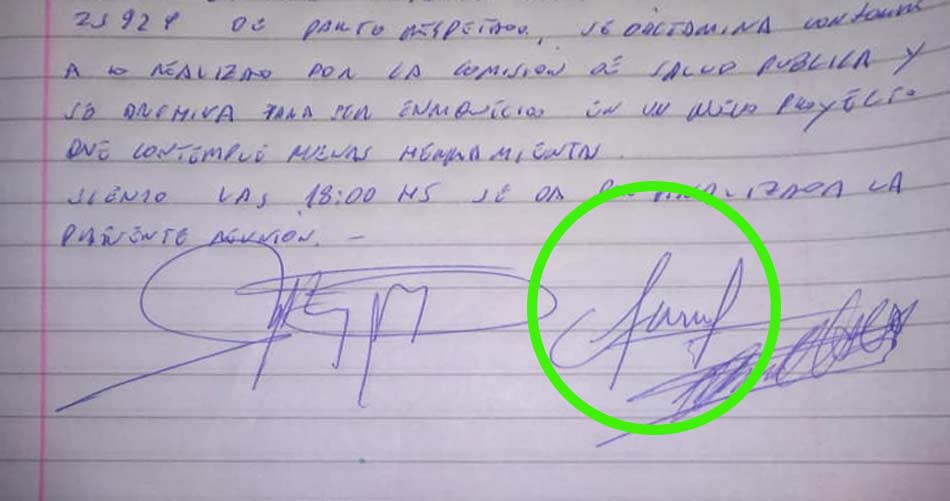 DE PARTO RESPETADO, SE DICTAMINA CONFORME
A LO REALIZADO POR LA COMISION DE SALUD PUBLICA Y
SE ARCHIVA PARA SER EN UN NUEVO PROYECTO
QUE CONTEMPLE HERRAMIENTAS.
SIENDO LAS 18:00 HS SE DA LA
PRESENTE REUNION. -